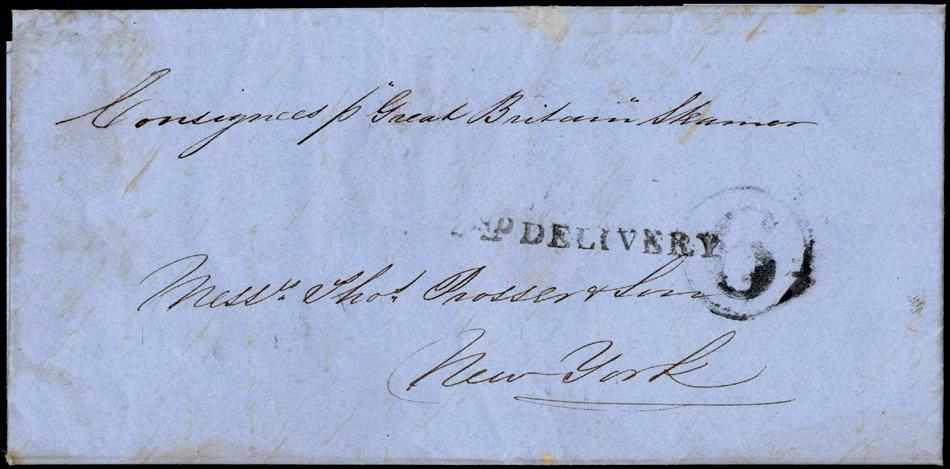 Consignees p "Great Britain" Steamer
DELIVERY 6
Messrs. Thos. Prosser & Son
New York